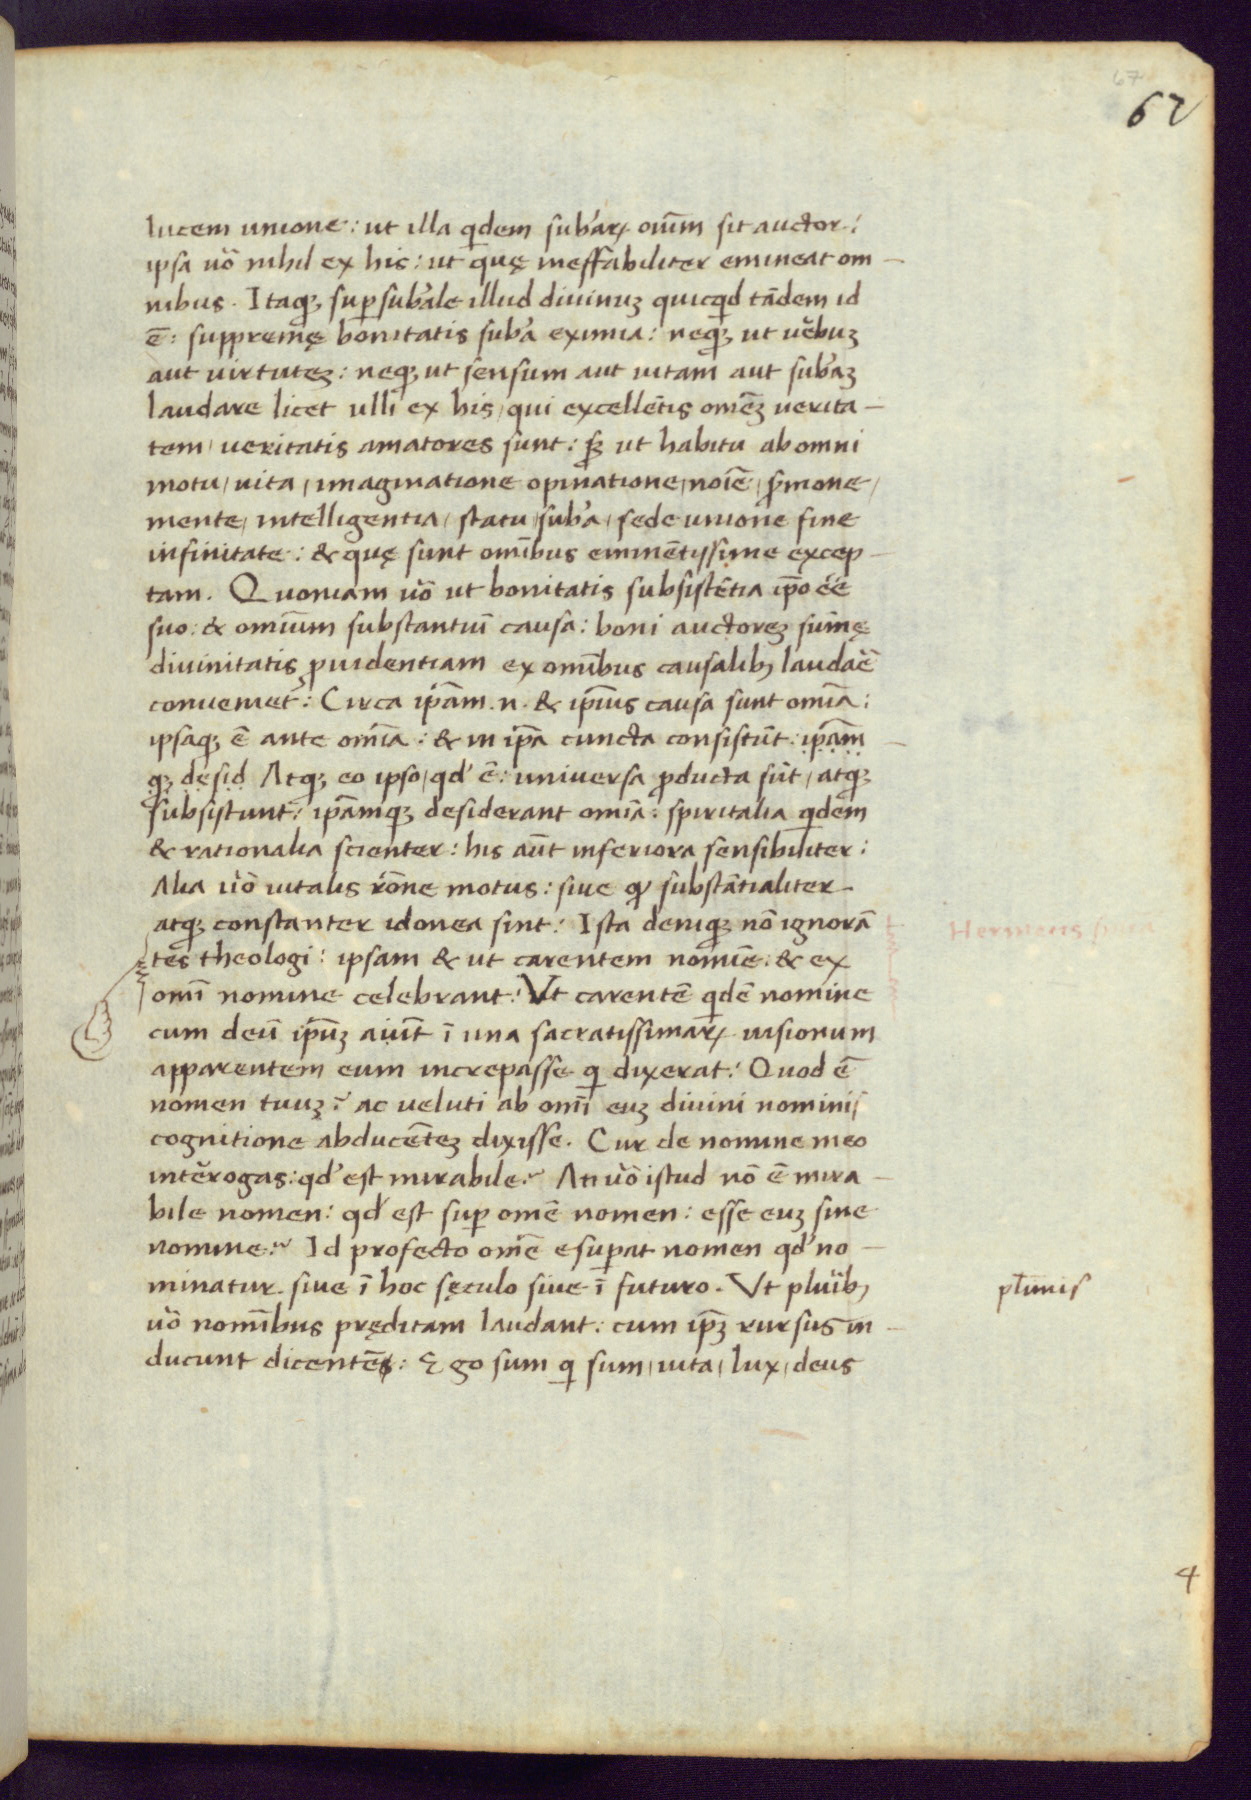 67
67
lucem unione: ut illa qdem sub'aꝝ oīum sit auctor:
ipsa uō nihil ex his: ut quę ineffabiliter emineat om–
nibus. Itaqꝫ supsub'ale illud diuinuꝫ quicqd tādem id
ē: suppremę bonitatis sub'a eximia: neqꝫ ut uēbuꝫ
aut uirtuteꝫ: neqꝫ ut sensum aut uitam aut sub'aꝫ
laudare licet ulli ex his, qui excellētis omēꝫ uerita–
tem, ueritatis amatores sunt: sꝫ ut habitu ab omni
motu, uita, imaginatione opinatione, noīe, smone,
mente, intelligentia, statu, sub'a, sede unione fine
infinitate: & quę sunt omībus eminētissime excep–
tam. Quoniam uō ut bonitatis subsistētia ipō eē
suo: & omīum substantiuī causa: boni auctoreꝫ sūmę
diuinitatis ꝓuidentiam ex omībus causalibꝫ laudaē
conueniet: Circa ipām .n. & ipīus causa sunt omīa:
ipsaqꝫ ē ante omīa: & in ipā cuncta consistūt: ipām–
qꝫ desid Atqꝫ eo ipso, qd' ē: uniuersa ꝓducta sūt, atqꝫ
subsistunt: ipāmqꝫ desiderant omīa: spiritalia qdem
& rationalia scienter: his aūt inferiora sensibiliter:
Alia uō uitalis rōne motus: siue ꝙ substātialiter
atqꝫ constanter idonea sint: Ista deniqꝫ nō ignorā
tes theologi: ipsam & ut carentem nomīe: & ex
omī nomine celebrant: Vt carentē qdē nomine
cum deū ipūꝫ aiūt ī una sacratissimaꝝ uisionum
apparentem eum increpasse qi dixerat: Quod ē
nomen tuuꝫ? ac ueluti ab omī euꝫ diuini nominis
cognitione abducēteꝫ dixisse. Cur de nomine meo
intērogas: qd' est mirabile? An uō istud nō ē mira–
bile nomen: qd' est sup omē nomen: esse euꝫ sine
nomine? Id profecto omē esupat nomen qd' no–
minatur siue ī hoc sęculo siue ī futuro. Vt pluībꝫ
plimis
uō nomībus pręditam laudant: cum ipꝫ rursus in–
ducunt dicentes: Ego sum qi sum, uita, lux, deus
4